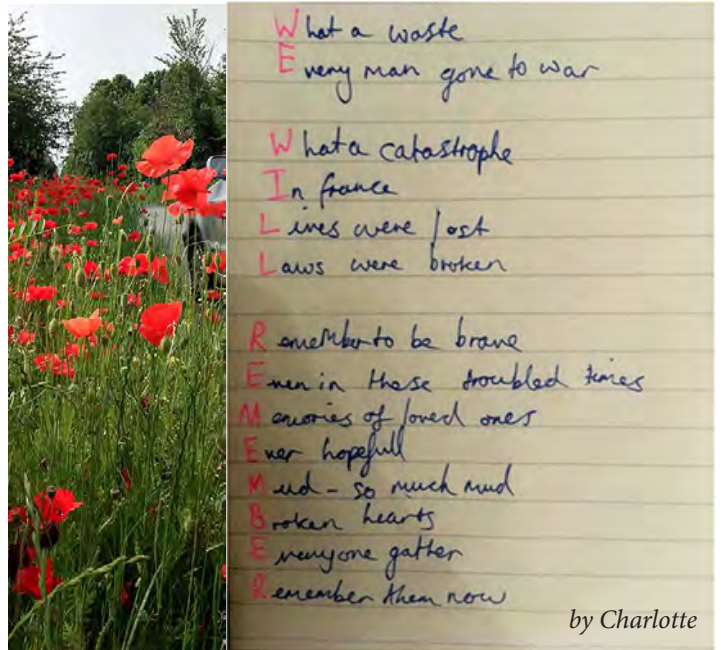 What a waste
Every man gone to war
What a catastrophe
In france
Lives were lost
Laws were broken
Remember to be brave
Even in these troubled times
Memories of loved ones
Ever hopefull
Mud - so much mud
Broken hearts
Everyone gather
Remember them now
by Charlotte